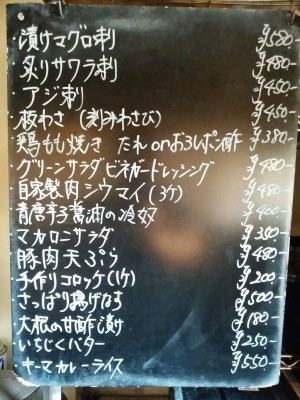 ・漬けマグロ刺 ¥580-
・炙りサワラ刺 ¥480-
・アジ刺 ¥450-
・板わさ (刻みわさび) ¥450-
・鶏もも焼き たれ or おろしポン酢 ¥380-
・グリーンサラダ ビネガードレッシング ¥480-
・自家製肉シウマイ(3ケ) ¥480-
・青唐辛子醤油の冷奴 ¥400-
・マカロニサラダ ¥350-
・豚肉天ぷら ¥480-
・手作りコロッケ(1ケ) ¥200-
・さっぱり揚げなす ¥500-
・大根の甘酢漬け ¥180-
・いちじくバター ¥250-
・キーマカレーライス ¥550-